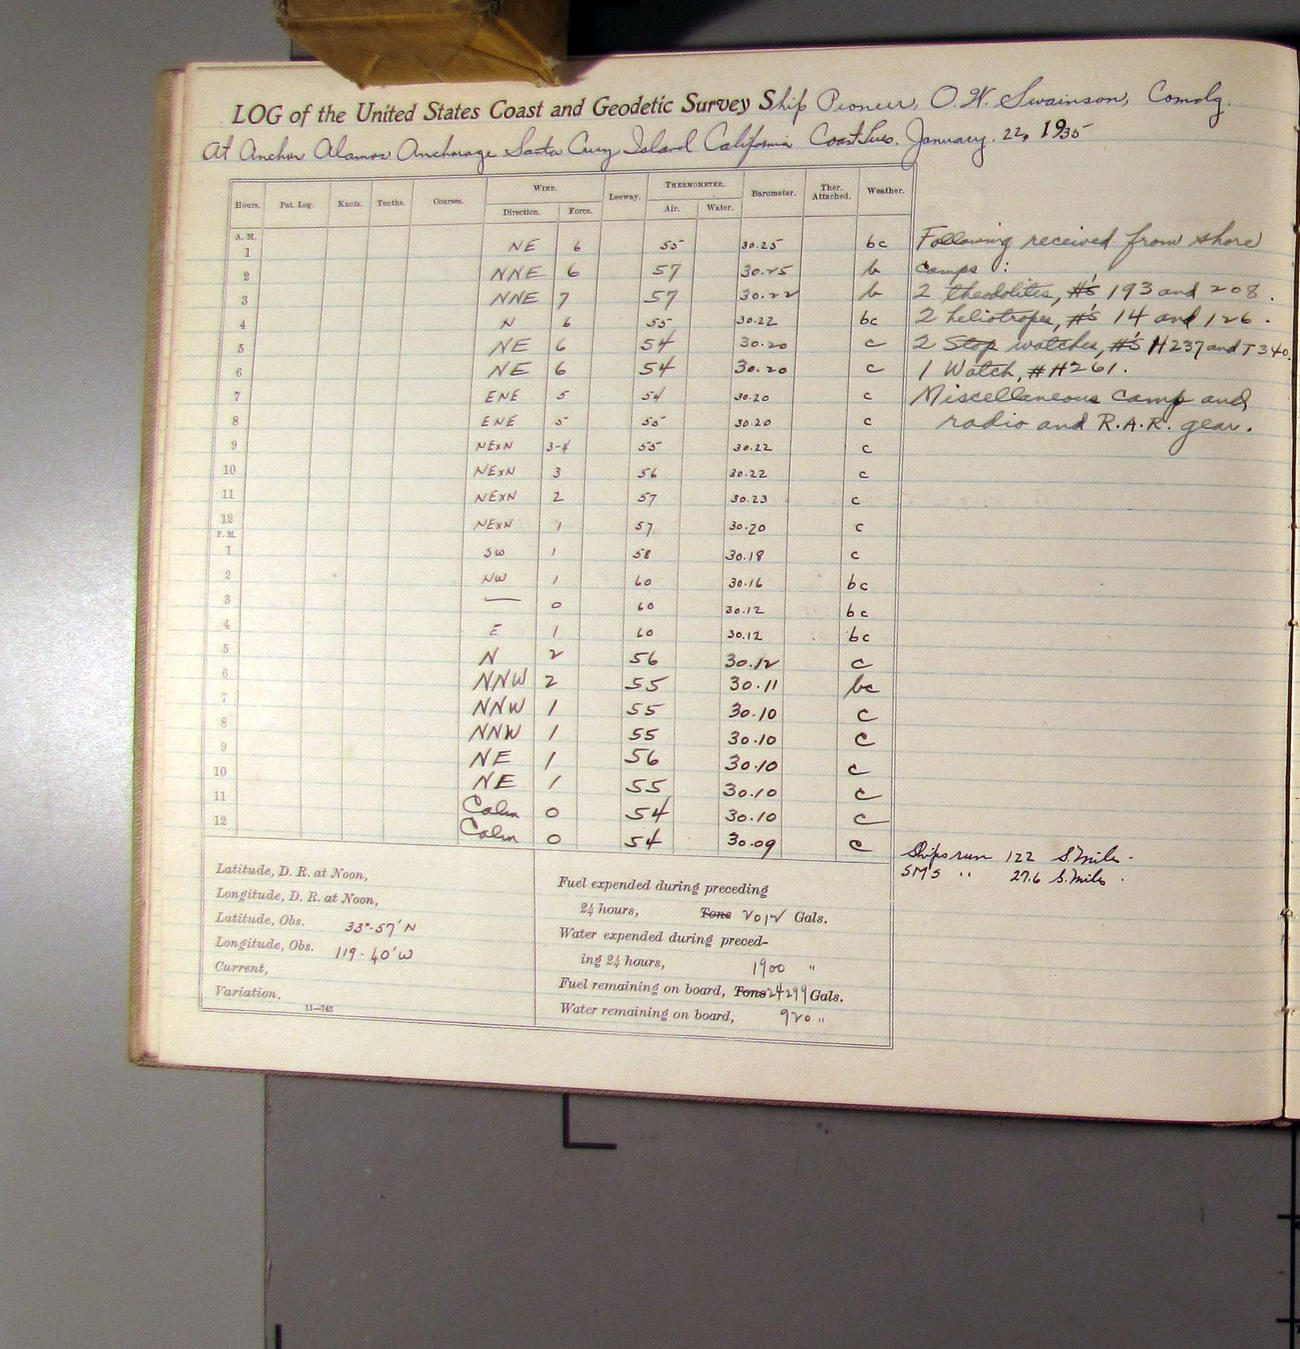 LOG of the United States Coast and Geodetic Survey Ship Pioneer, O.W. Swainson, Comdg.
At Anchor Alamos Anchorage Santa Cruz Island California January. 22, 1935
Hours. Pat. Log. Knots. Tenths. Courses. WIND. Leeway. THERMOMETER. Barometer. Ther. Attached. Weather.
Direction. Force. Air. Water.
A. M.
1 NE 6 55 30.25 bc
2 NNE 6 57 30.25 b
3 NNE 7 57 30.22 b
4 N 6 55 30.22 bc
5 NE 6 54 30.20 c
6 NE 6 54 30.20 c
7 ENE 5 54 30.20 c
8 ENE 5 55 30.20 c
9 NExN 3-4 55 30.22 c
10 NExN 3 56 30.22 c
11 NExN 2 57 30.23 c
12 NExN 1 57 30.20 c
P. M.
1 SW 1 58 30.18 c
2 NW 1 60 30.16 bc
3 — 0 60 30.12 bc
4 E 1 60 30.12 bc
5 N 2 56 30.12 c
6 NNW 2 55 30.11 bc
7 NNW 1 55 30.10 c
8 NNW 1 55 30.10 c
9 NE 1 56 30.10 c
10 NE 1 55 30.10 c
11 Calm 0 54 30.10 c
12 Calm 0 54 30.09 c
Following received from shore
camps :
2 theodolites, #'s 193 and 208.
2 heliotropes, #'s 14 and 126.
2 Stop watches, #'s H237 and T340.
1 Watch, # H261.
Miscellaneous camp and
radio and R.A.R. gear.
Ships run 122 S. Miles.
SM's " 27.6 S. Miles.
Latitude, D. R. at Noon,
Longitude, D. R. at Noon,
Latitude, Obs. 33°-57' N
Longitude, Obs. 119-40' W
Current,
Variation,
11—743
Fuel expended during preceding
24 hours, Tons 2012 Gals.
Water expended during preced-
ing 24 hours, 1900 "
Fuel remaining on board, Tons 24299 Gals.
Water remaining on board, 920 "